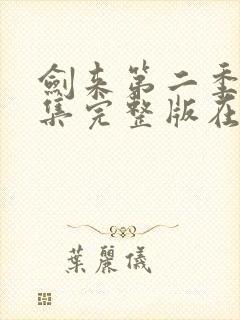 劍来第二季
集完整版在
葉麗儀